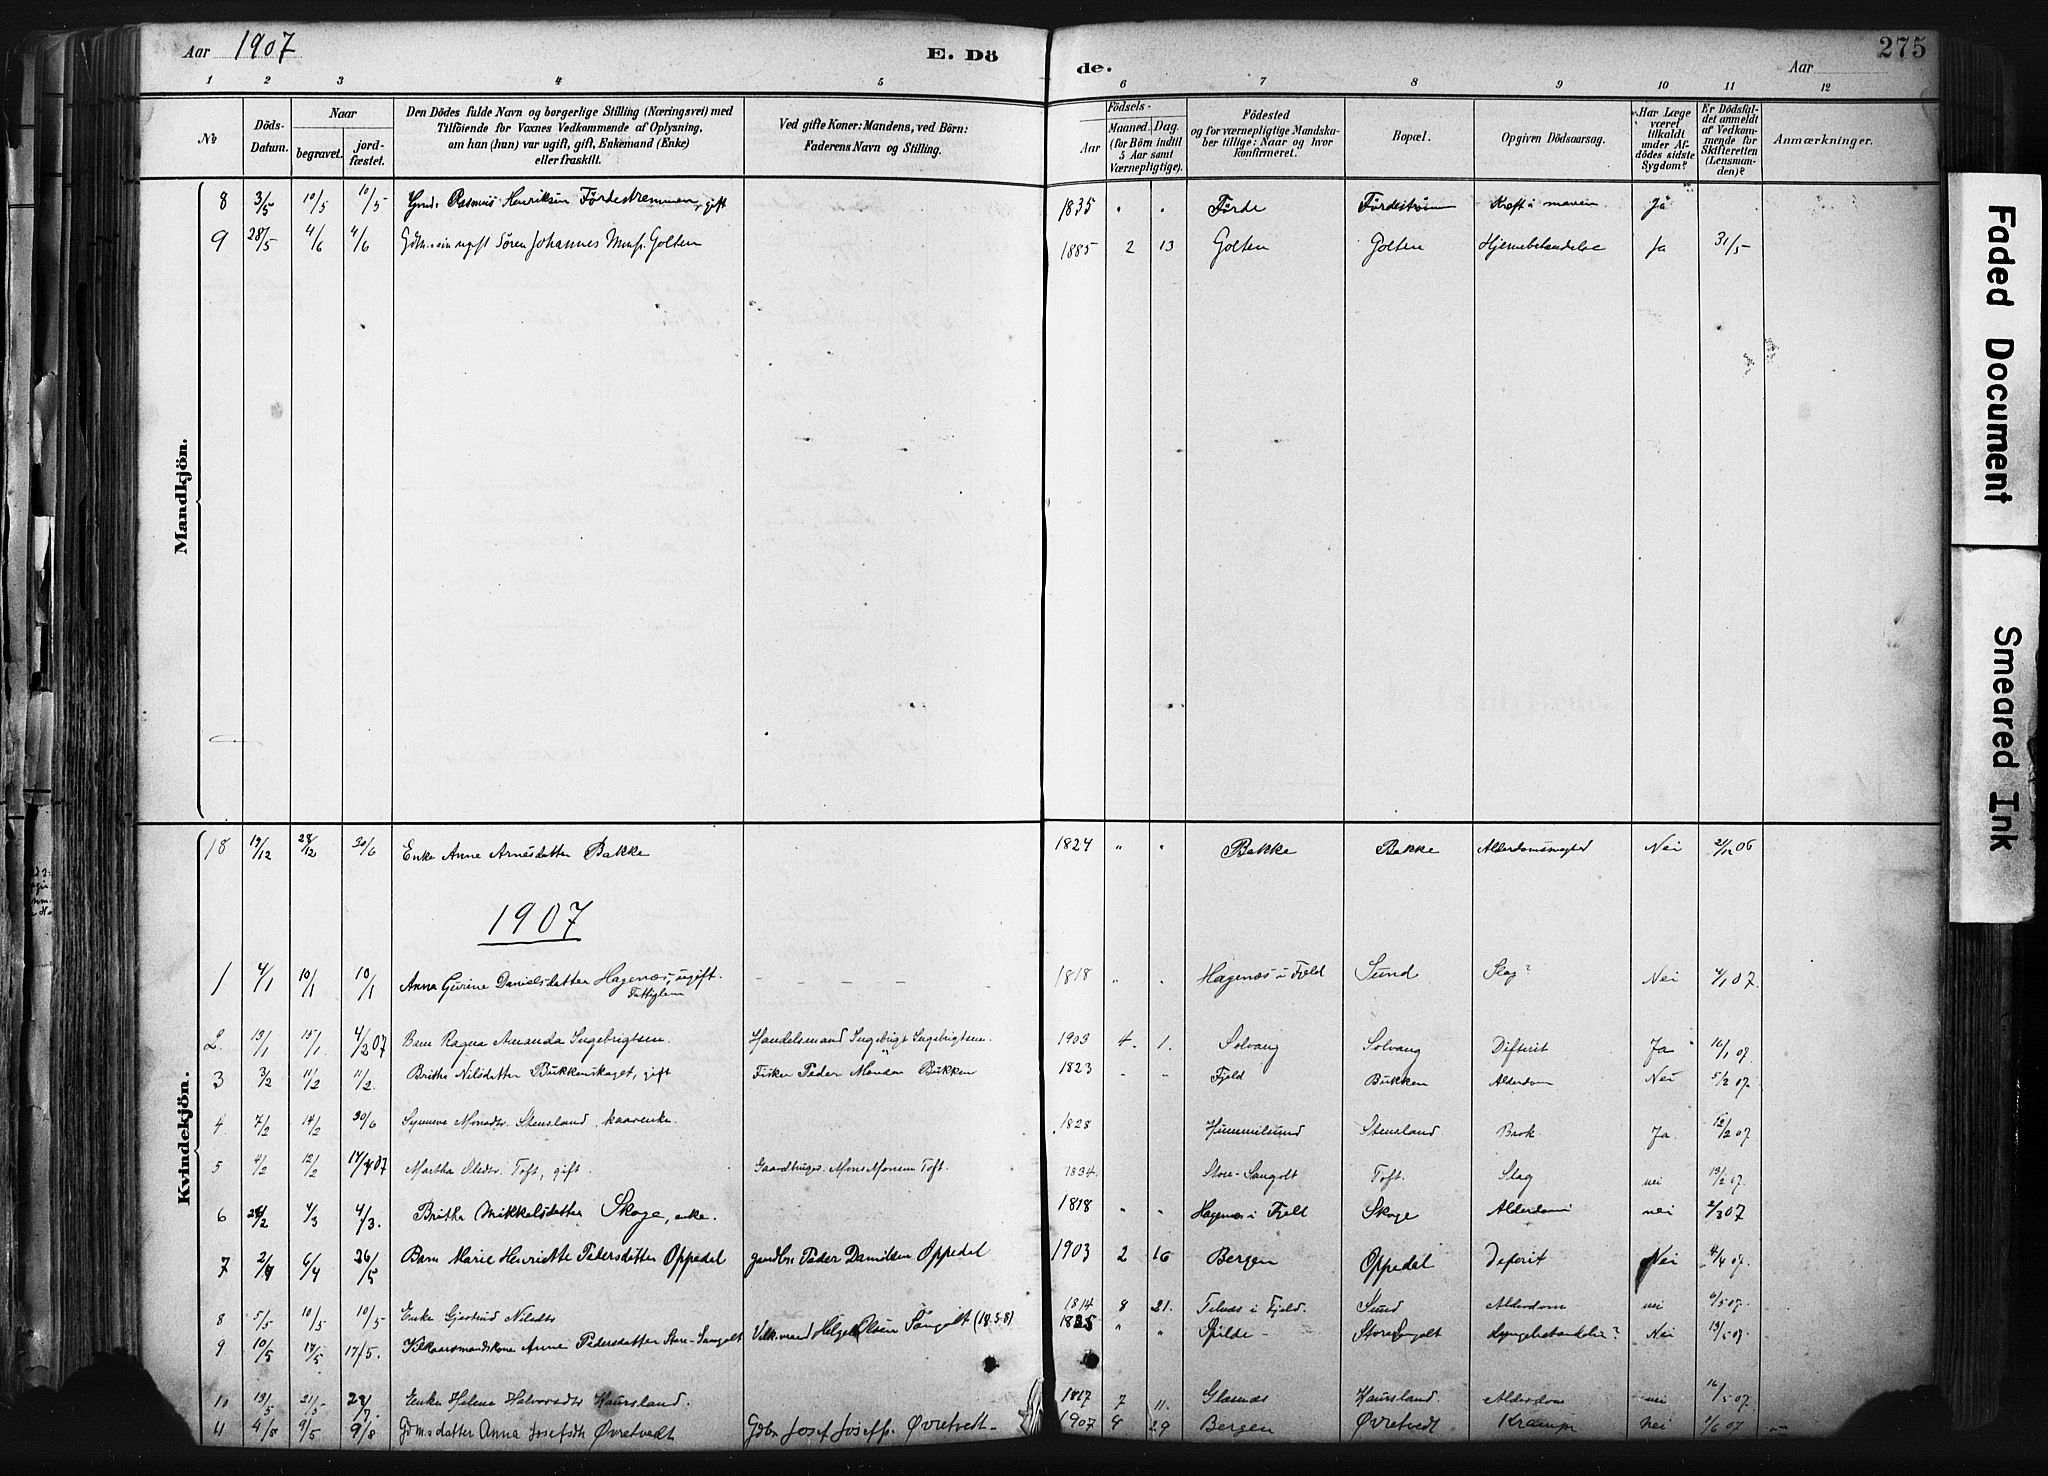 Aar 1907 E. Dö de. Aar 275
1 2 3 4 5 6 7 8 9 10 11 12
No Döds-Datum. Naar begravet. jord-fæstet.
Den Dödes fulde Navn og borgerlige Stilling (Næringsvei) med
Tilföiende for Voxnes Vedkommende af Oplysning,
om han (hun) var ugift, gift, Enkemand (Enke)
eller fraskilt.
Ved gifte Koner: Mandens, ved Börn:
Faderens Navn og Stilling.
Födsels-
Aar Maaned. Dag.
(for Börn indtil
5 Aar samt
Værnepligtige).
Födested
og for værnepligtige Mandska-
ber tillige: Naar og hvor
konfirmeret.
Bopæl.
Opgiven Dödsaarsag.
Har Læge
været
tilkaldt
under Af-
dödes sidste
Sygdom?
Er Dödsfal-
det anmeldt
af Vedkom-
mende for
Skifteretten
(Lensman-
den)?
Anmærkninger.
Mandkjön.
8 3/5 10/5 10/5 Gmd. Rasmus Henriksen Fördestrømmen, gift 1835 " " Førde Førdestrøm Kræft i maven Ja
9 28/5 4/6 4/6 Søren Johannes Golten 1885 2 13 Golten Golten Hjernebetændelse Ja 31/5
Kvindekjön.
18 19/12 28/12 30/6 Enke Anne Arnesdatter Bakke 1824 " " Bakke Bakke Alderdomssvaghed Nei 21/12 06
1907
1 4/1 10/1 10/1 Anna Gurine Danielsdatter Hagenæs, ugift. - - - - - 1818 " " Hagenæs i Fjeld Sund Slag? Nei 4/1 07.
Fattiglem
2. 13/1 15/1. 4/2 07 Barn Ragna Amanda Ingebrigtsen. Handelsmand Ingebrigt Ingebrigtsen. 1903 4. 1. Solvang Solvang Difterit Ja 16/1 07.
3 3/2 11/2 11/2. Britha Nilsdatter Bukkenskaget, gift Fisker Peder Monsen Bukken 1823 - - Fjeld Bukken Alderdom Nei 5/2 07.
4. 7/2 14/2 30/6 Synneva Monsdtr. Stensland, kaarenke. 1828 Hummelsund Stensland. Brok. Ja. 12/2 07.
5 4/2 12/2 14/4 07 Martha Olsdtr. Toft, gift. Gaardbruger Mons Monsen Toft. 1834. Store-Sangolt Toft. Slag nei 19/2 07.
6 28/2 4/3 4/3. Britha Mikkelsdatter Skoge, enke. 1818 " " Hagenæs i Fjeld Skoge Alderdom nei 2/3 07
7 2/4 6/4 26/5 Barn Marie Henriette Pedersdatter Oppedal gaardbr. Peder Danielsen Oppedal 1903 2 16 Bergen Oppedal Difterit Nei 4/4 07.
8 5/5 10/5 10/5 Enke Gjertrud Nilsdtr 1814 8 21. Telnæs i Fjeld. Sund Alderdom nei 6/5 07.
9 10/5 17/5 17/5. Vilkaarsmandskone Anne Pedersdatter Store-Sangolt Vilk.mand Helge Olsen Sangolt 1835 " " Spilde - Store Sangolt Lungebetændelse? Nei 13/5 07.
10 13/5 21/5 28/7. Enke Helena Halvorsdtr Kausland. 1817 7 11. Glæsnæs Kausland. Alderdom nei 16/5 07.
11 4/5 9/5 9/8 Gdm.sdatter Anna Josefsdtr Øvretvedt Gdbr. Josef Josefs. Øvretvedt 1907 4 29 Bergen Øvretvedt Krampe nei 1/6 07
Faded Document
Smeared Ink